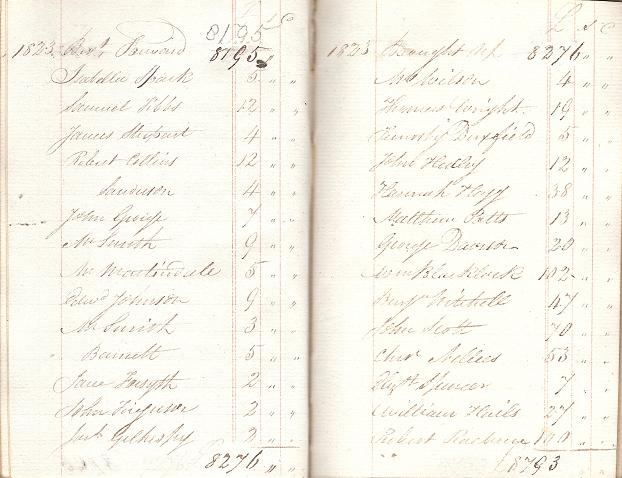 8195
£ s d
1823 Bro.t Forward 8195 " "
Saddler Spark 5 " "
Samuel Tibbs 12 " "
James Stewart 4 " "
Robert Collins 12 " "
Sanderson 4 " "
John George 7 " "
Mr Smith 9 " "
Mr Martindale 5 " "
Edwd Johnson 9 " "
Mr Smith 3 " "
Barnett 5 " "
Jane Forsyth 2 " "
John Ferguson 2 " "
Gilhespy 2 " "
8276 " "
£ s d
1823 Brought up 8276 " "
Mr Wilson 4 " "
Thomas Wright 19 " "
Timothy Duxfield 5 " "
John Hedley 12 " "
Hannah Hogg 38 " "
Matthew Potts 13 " "
George Davison 20 " "
Wm Blacklock 102 " "
Benjn Mitchell 47 " "
John Scott 70 " "
Chrr 53 " "
Elizth Spencer 7 " "
William Hails 27 " "
Robert 100 " "
8793